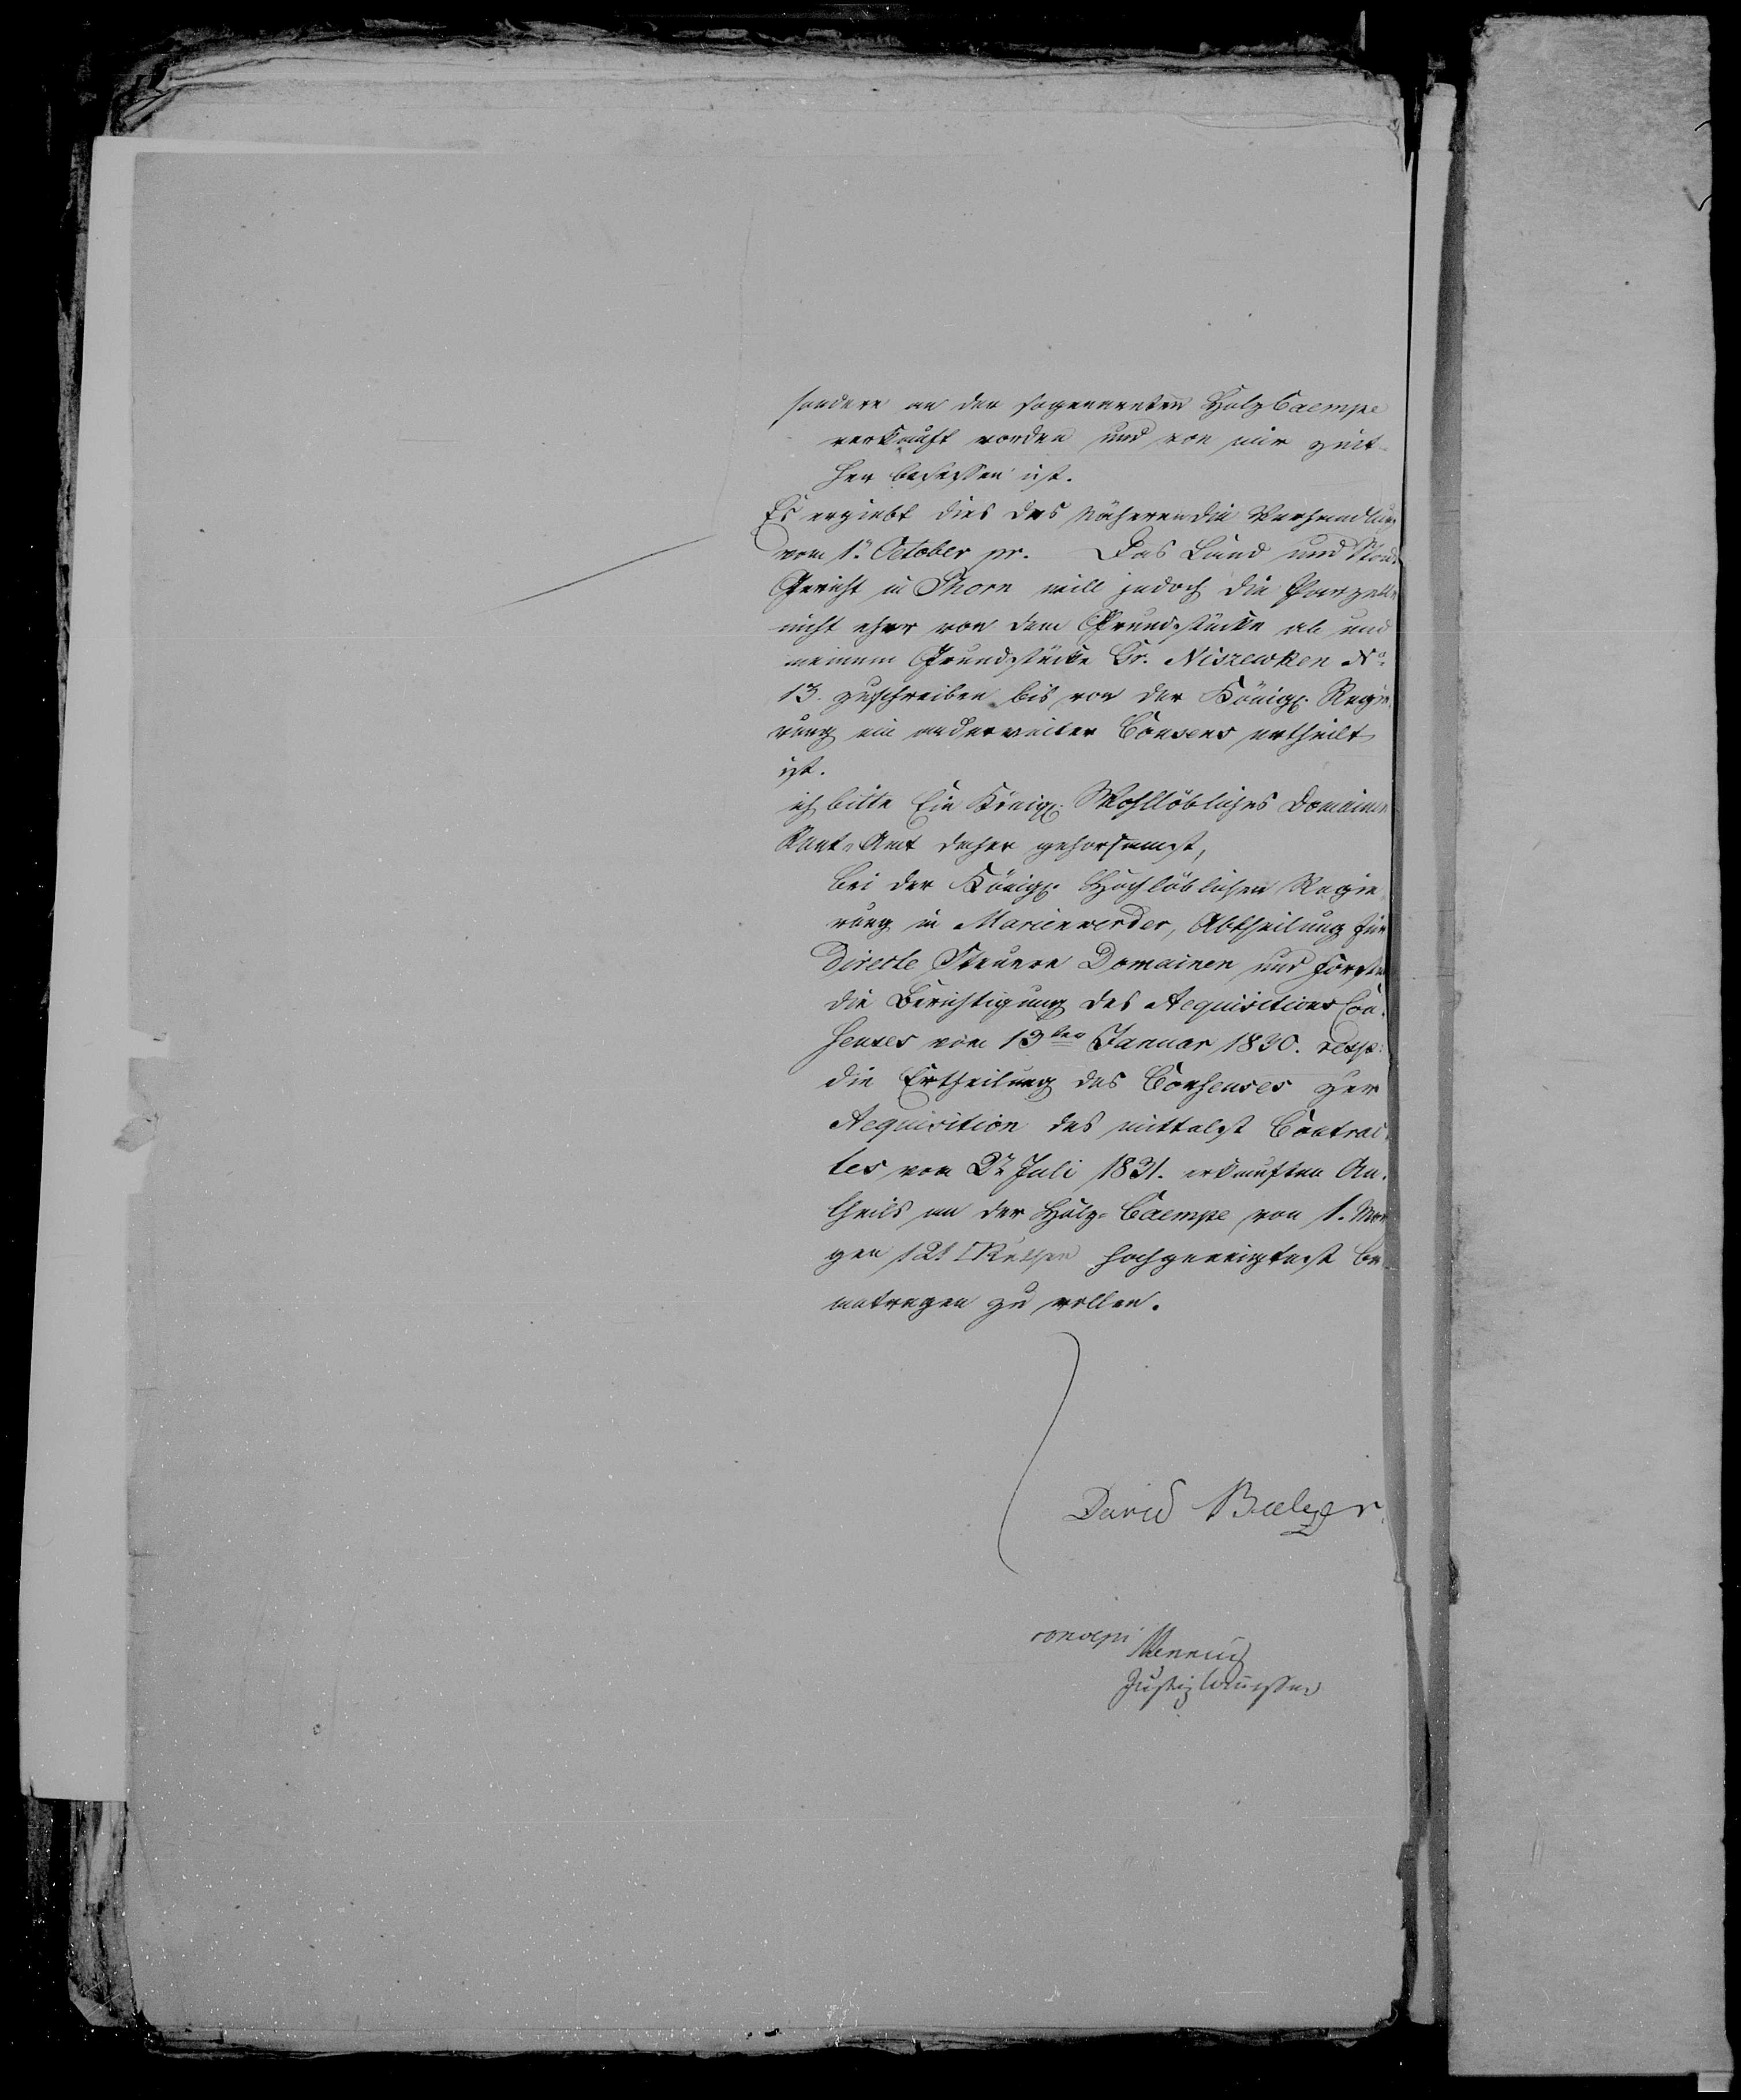 sondern an der sogenannten Holz Caempe
verkauft worden und von mir zeit-
her besessen ist.
Es ergiebt dies des Näheren die Verhandlung
vom 1n October pr. Das Land und Stadt
Gericht in Thorn will jedoch die Parzelle
nicht eher von dem Grundstücke ab und
meinem Grundstücke Gr. Niszewken No
13. zuschreiben bis von der Königl. Regie-
rung ein anderweiter Consens ertheilt
ist.
ich bitte Ein Königl. Wohllöbliches Domainen
Rent-Amt daher gehorsamst,
bei der Königl. Hochlöblichen Regie-
rung in Marienwerder, Abtheilung für
directe Steuern Domainen und Forsten
die Berichtigung des Acquisitions Con-
senses vom 13ten Januar 1830. resp:
die Ertheilung des Consenses zur
Acquisition des mittelst Contrac-
tes vom 27 Juli 1831. erkauften An-
theils an der Holz-Caempe von 1. Mor-
gen 121 □Ruthen hochgeneigtest be-
antragen zu wollen.
David Balzer
concepi
Justiz Commissar